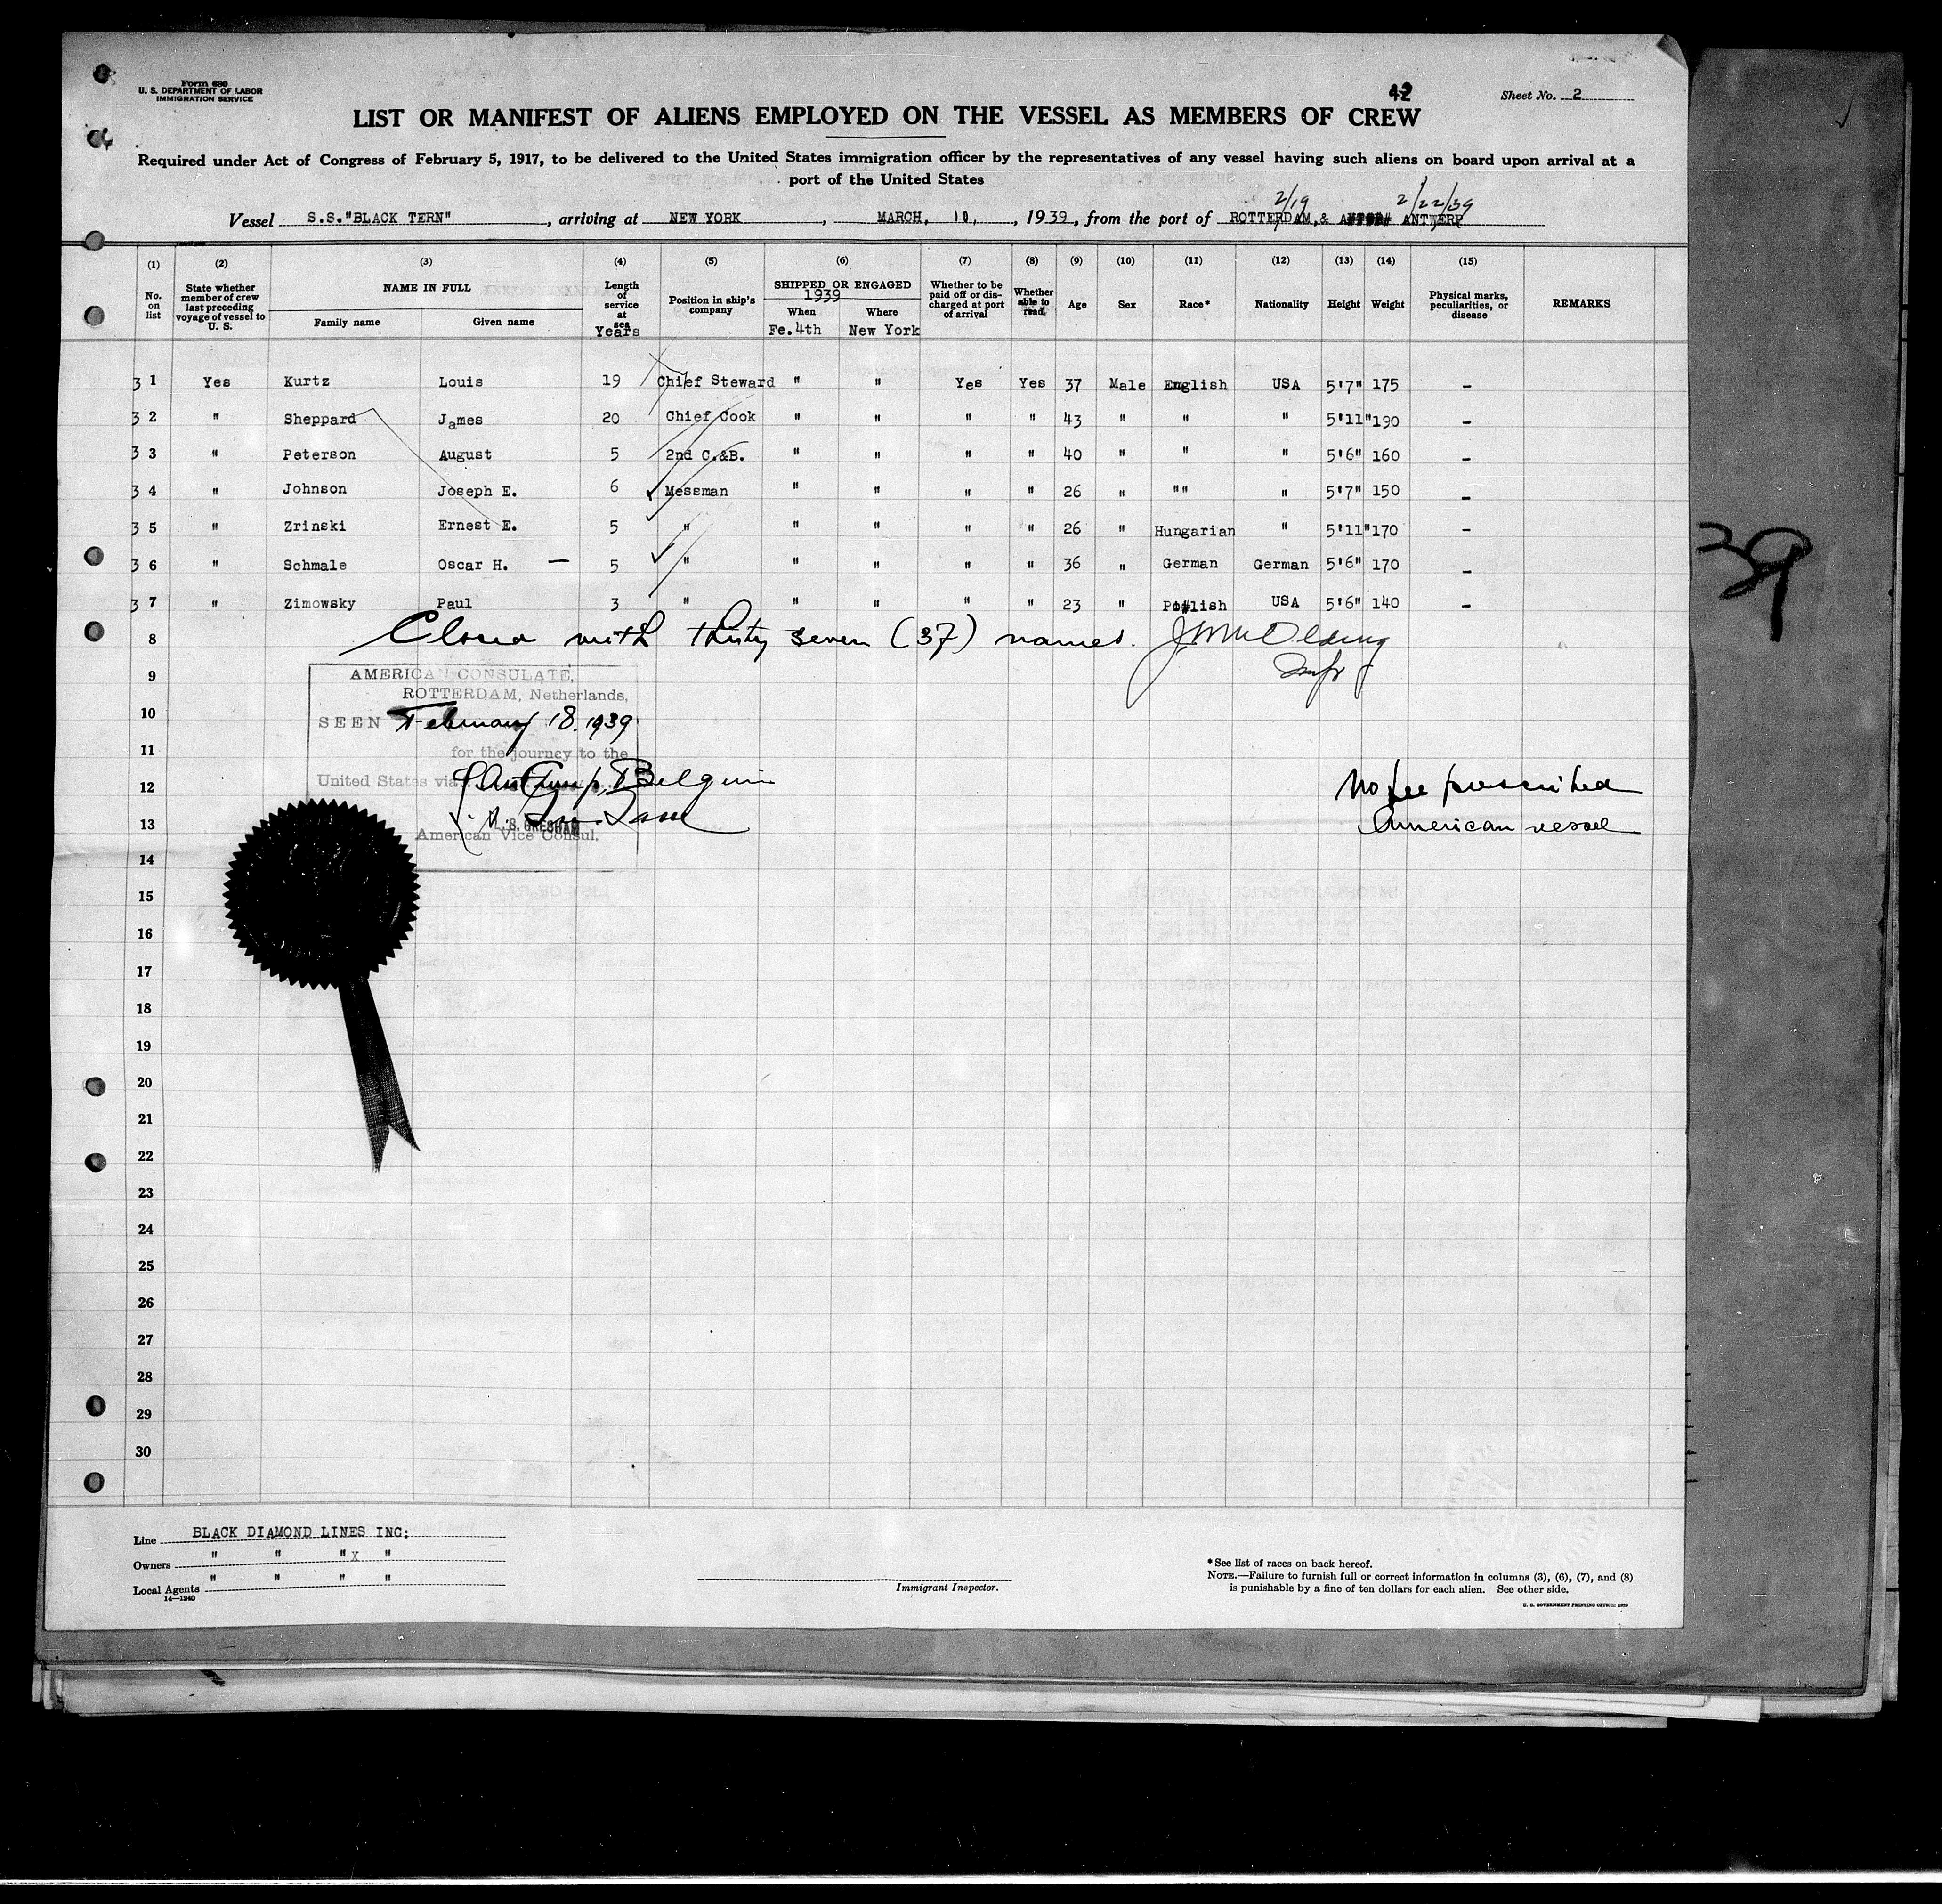 Form 680
U. S. DEPARTMENT OF LABOR
IMMIGRATION SERVICE
42
Sheet No. 2
LIST OR MANIFEST OF ALIENS EMPLOYED ON THE VESSEL AS MEMBERS OF CREW
Required under Act of Congress of February 5, 1917, to be delivered to the United States immigration officer by the representatives of any vessel having such aliens on board upon arrival at a
port of the United States
2/19 2/22/39
Vessel S.S."BLACK TERN", arriving at NEW YORK, MARCH, 1939, from the port of ROTTERDAM,& ANTWERP
(1) (2) (3) (4) (5) (6) (7) (8) (9) (10) (11) (12) (13) (14) (15)
No. on list
State whether member of crew last preceding voyage of vessel to U. S.
NAME IN FULL
Family name Given name
Length of service at sea
Years
Position in ship's company
SHIPPED OR ENGAGED
1939
When Where
Fe.4th New York
Whether to be paid off or discharged at port of arrival
Whether able to read
Age Sex Race* Nationality Height Weight
Physical marks, peculiarities, or disease
REMARKS
3 1 Yes Kurtz Louis 19 Chief Steward " " Yes Yes 37 Male English USA 5'7" 175 -
3 2 " Sheppard James 20 Chief Cook " " " " 43 " " " 5'11" 190 -
3 3 " Peterson August 5 2nd C.&B. " " " " 40 " " " 5'6" 160 -
3 4 " Johnson Joseph E. 6 Messman " " " " 26 " "" " 5'7" 150 -
3 5 " Zrinski Ernest E. 5 " " " " " 26 " Hungarian " 5'11" 170 -
3 6 " Schmale Oscar H. — 5 " " " " " 36 " German German 5'6" 170 -
3 7 " Zimowsky Paul 3 " " " " " 23 " Polish USA 5'6" 140 -
8 Closed with thirty seven (37) names.
9
AMERICAN CONSULATE,
ROTTERDAM, Netherlands,
10
SEEN February 18. 1939
11
for the journey to the
12
United States via Antwerp, Belgium
No fee prescribed
13
American vessel
S. GRESHAM
American Vice Consul.
14
15
16
17
18
19
20
21
22
23
24
25
26
27
28
29
30
39
Line BLACK DIAMOND LINES INC:
Owners " " " X "
Local Agents " " " "
14—1240
Immigrant Inspector.
*See list of races on back hereof.
NOTE.—Failure to furnish full or correct information in columns (3), (6), (7), and (8)
is punishable by a fine of ten dollars for each alien. See other side.